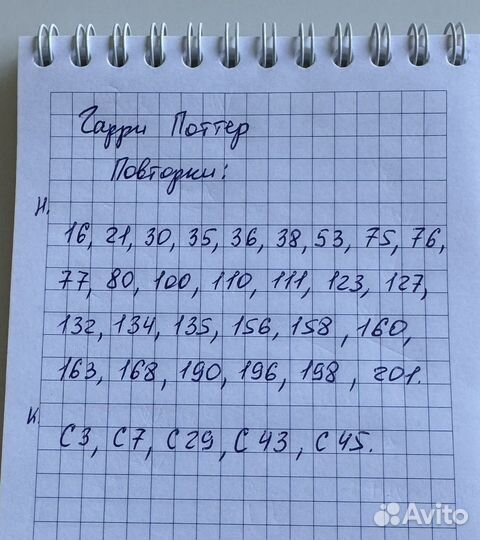 Гарри Поттер
Повторки:
Н.
16, 21, 30, 35, 36, 38, 53, 75, 76,
77, 80, 100, 110, 111, 123, 127,
132, 134, 135, 156, 158, 160,
163, 168, 190, 196, 198, 201.
К.
С3, С7, С29, С43, С45.
Avito